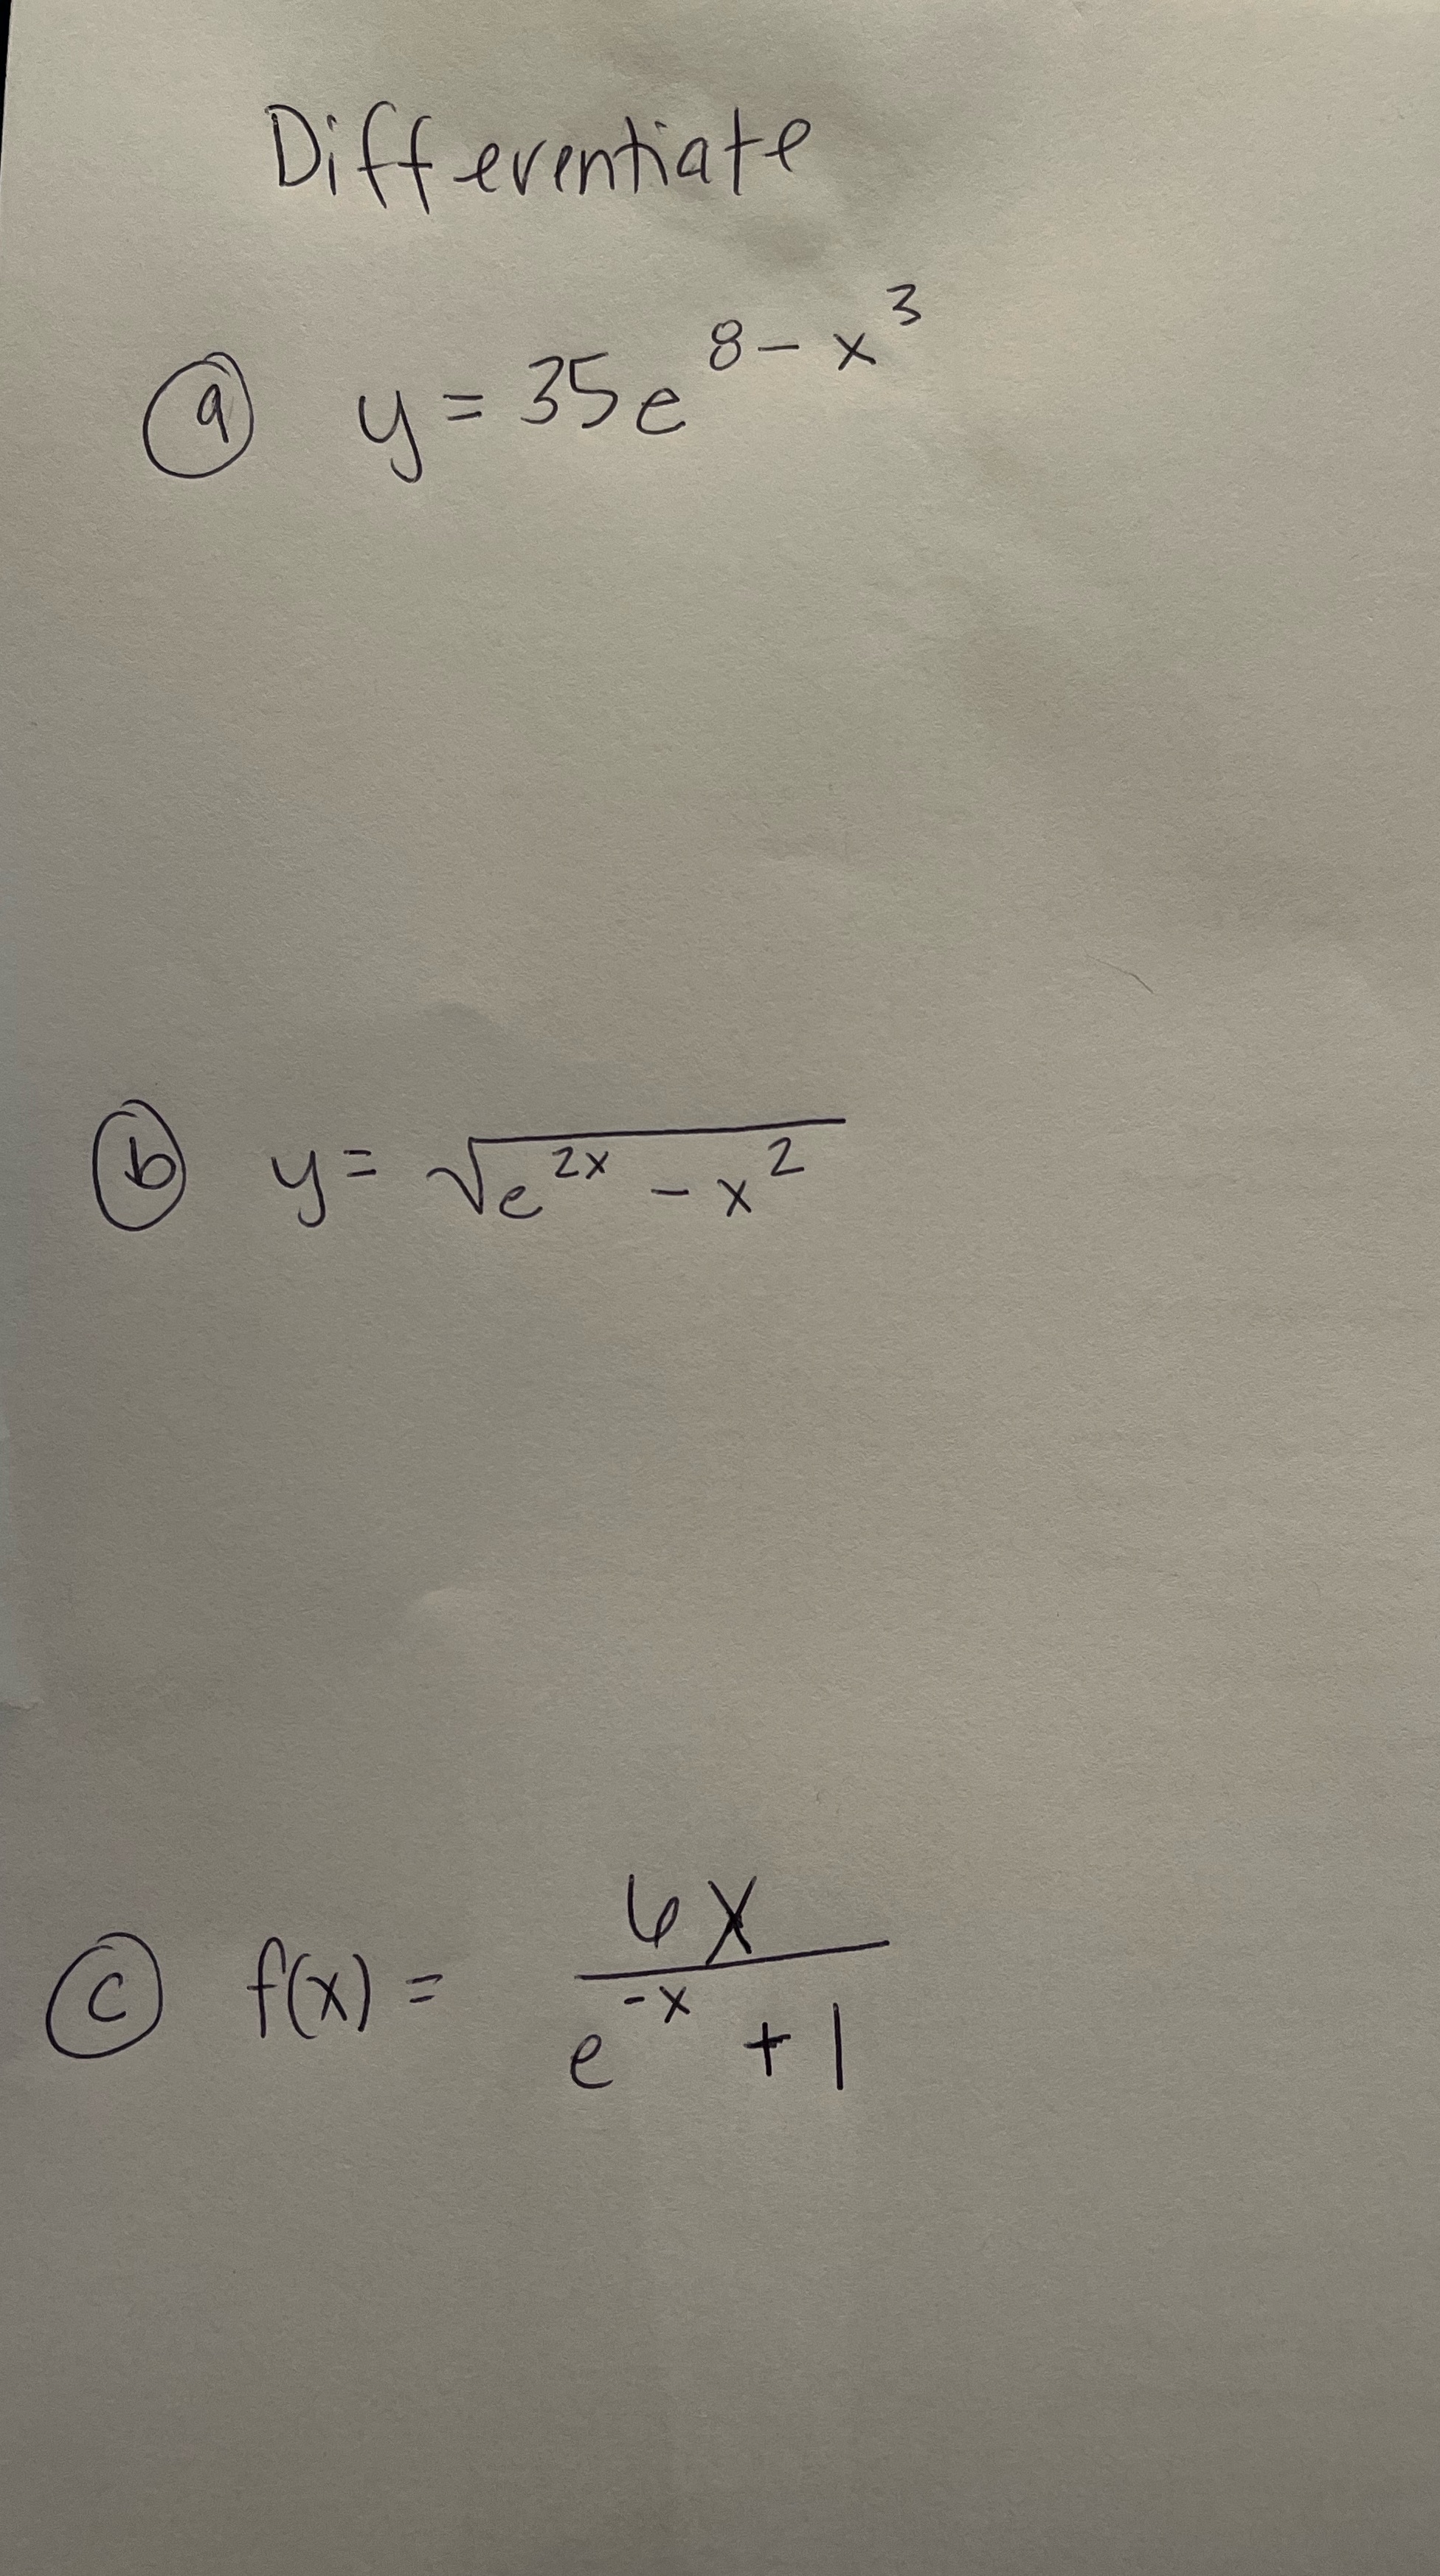 Differentiate
ⓐ y = 35e^{8 - x^3}
ⓑ y = √(e^{2x} - x^2)
ⓒ f(x) = \frac{6x}{e^{-x} + 1}